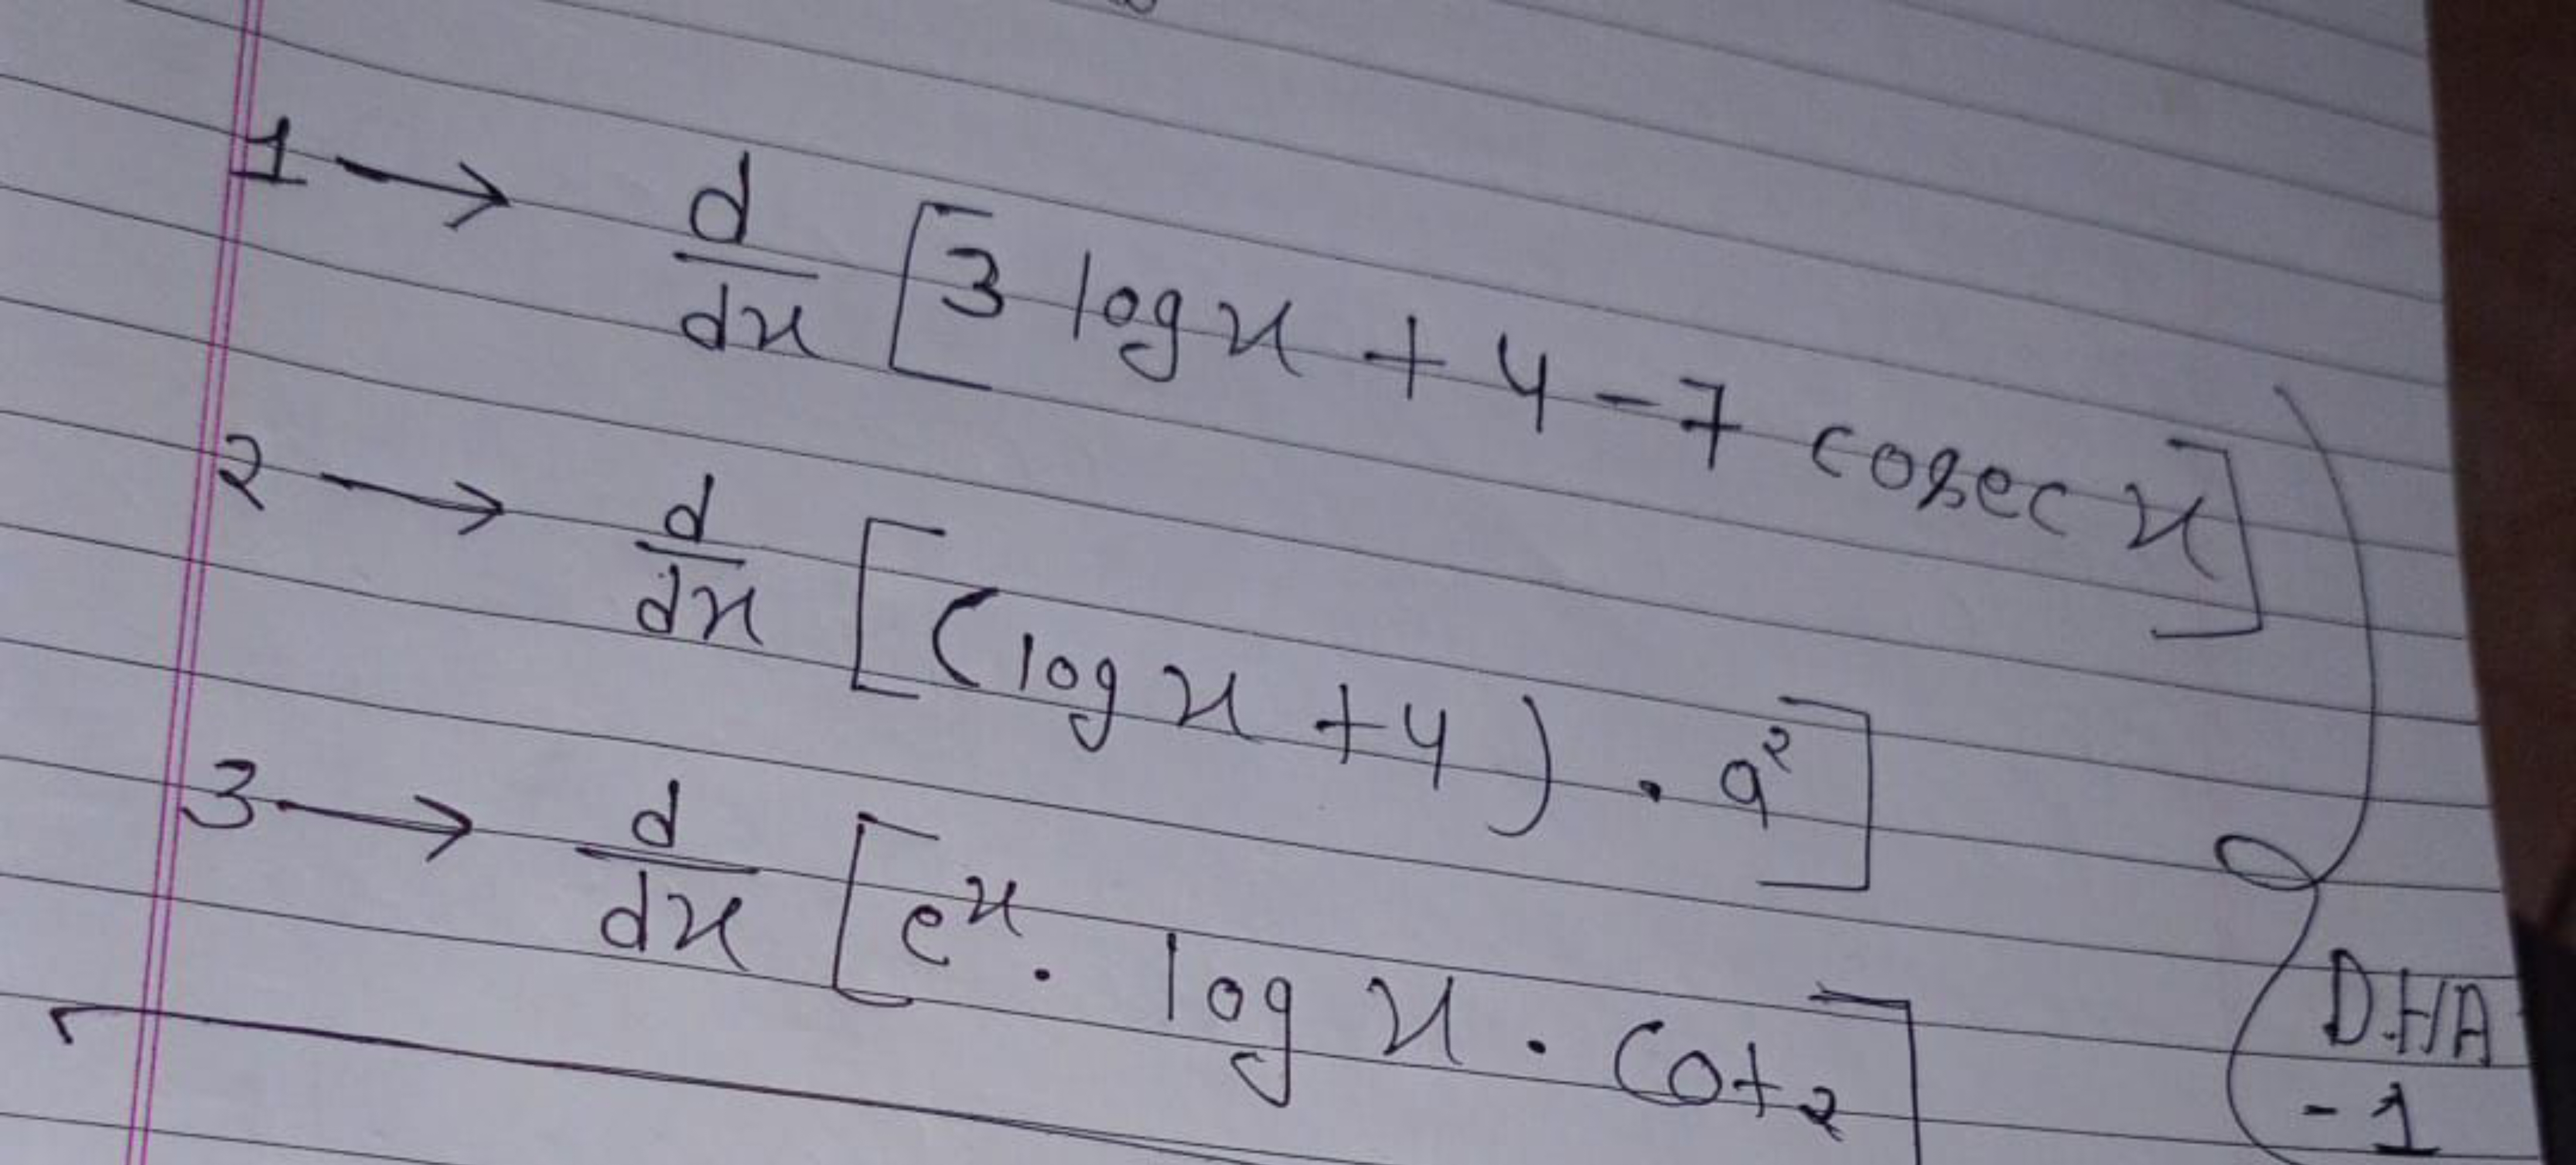 1 → d/dx [3 log x + 4 - 7 cosec x]
2 → d/dx [(log x + 4) . a²]
3 → d/dx [e^x . log x . cot 2]
D.HA
- 1